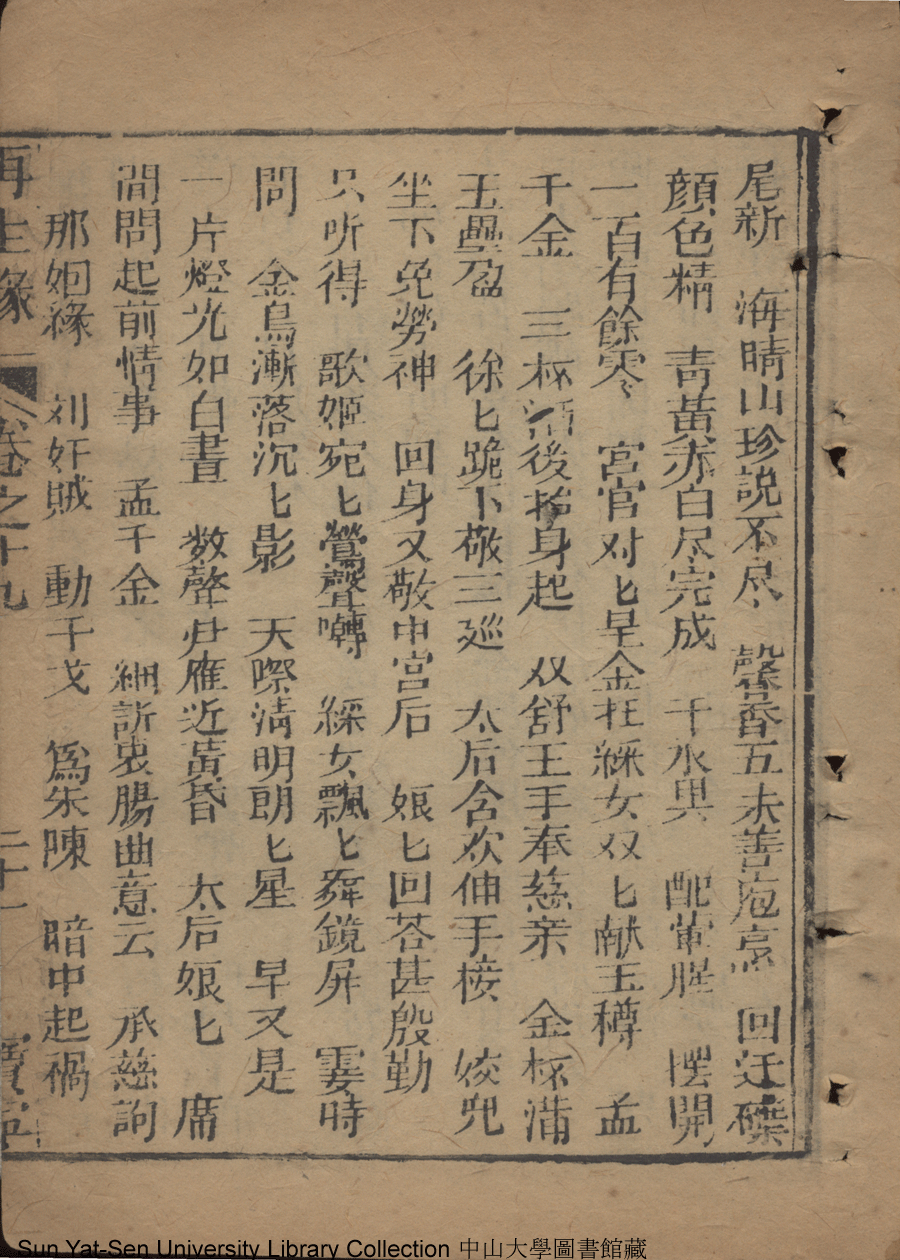 尾新　海晴山珍説不尽　馨香五未善庖烹　回廷磔
顔色精　青黃赤白尽完成　千水異　配葷腥　擺開
一百有餘零　宮官对匕呈金　綵女双匕献玉樽　孟
千金　三杯酒後抬身起　双舒王手奉慈亲　金杯滿
玉壘盈　徐匕跪下敬三廵　太后含欢伸手接　姣兒
坐下免勞神　回身又敬中宫后　娘匕回荅甚殷勤
只听得　歌姬宛匕鶯聲囀　綵女飄匕舞鏡屏　霎時
間　金烏漸落沉匕影　天際清明朗匕星　早又是
一片燈光如白晝　数聲　雁近黃昏　太后娘匕　席
間問起前情事　孟千金　細訴衷腸曲意云　承慈詢
那姻緣　刘奸賊　動干戈　爲朱陳　暗中起禍
再生緣　卷之十九　二十一　寶寧
Sun Yat-Sen University Library Collection 中山大學圖書館藏